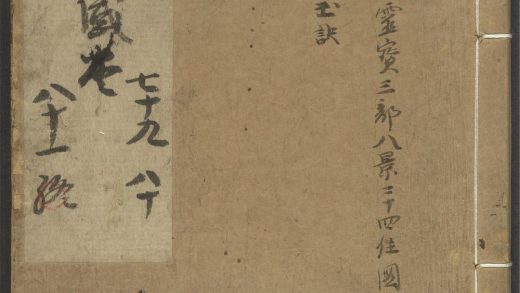 靈寳三部八景二十四住圖
玉訣
七十九 八十
八十一 終